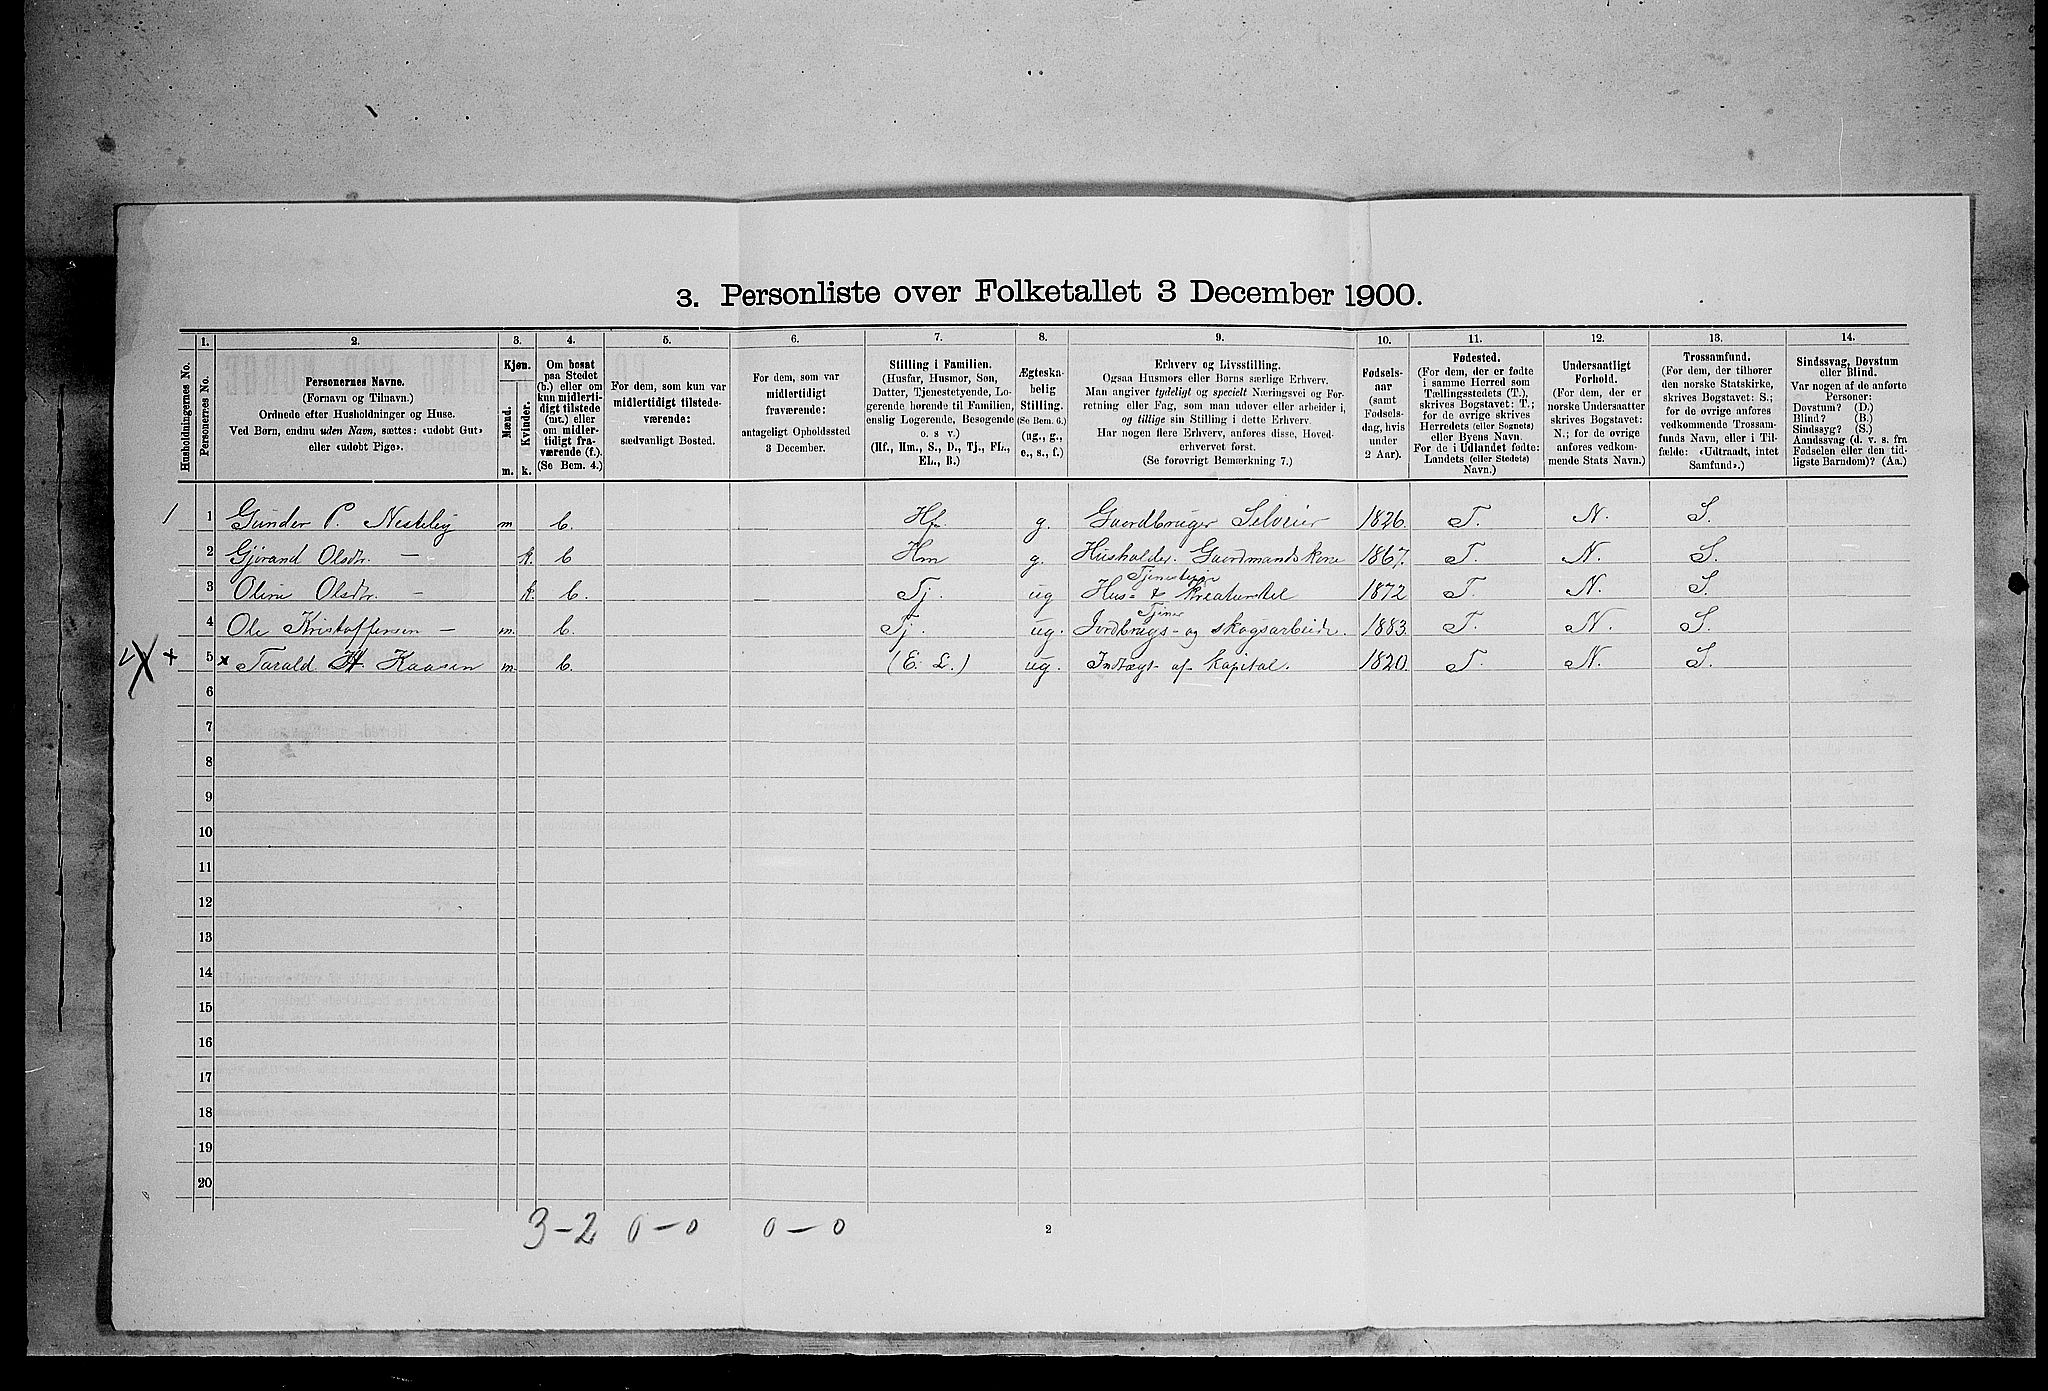 3. Personliste over Folketallet 3 December 1900.
1. 2. 3. 4. 5. 6. 7. 8. 9. 10. 11. 12. 13. 14.
Husholdningernes No.
Personernes No.
Personernes Navne.
(Fornavn og Tilnavn.)
Ordnede efter Husholdninger og Huse.
Ved Børn, endnu uden Navn, sættes: «udobt Gut»
eller «udobt Pige».
Kjøn.
Mænd.
Kvinder.
m. k.
Om bosat
paa Stedet
(b.) eller om
kun midlerti-
digt tilstede
(mt.) eller
om midler-
tidigt fra-
værende (f.).
(Se Bem. 4.)
For dem, som kun var
midlertidigt tilstede-
værende:
sædvanligt Bosted.
For dem, som var
midlertidigt
fraværende:
antageligt Opholdssted
3 December.
Stilling i Familien.
(Husfar, Husmor, Søn,
Datter, Tjenestetyende, Lo-
gerende hørende til Familien,
enslig Logerende, Besøgende
o. s v.)
(Hf., Hm., S., D., Tj., FL.,
EL., B.)
Ægteska-
belig
Stilling.
(Se Bem. 6.)
(ug., g.,
e., s., f.)
Erhverv og Livsstilling.
Ogsaa Husmors eller Børns særlige Erhverv.
Man angiver tydeligt og specielt Næringsvei og For-
retning eller Fag, som man udover eller arbeider i,
og tillige sin Stilling i dette Erhverv.
Har nogen flere Erhverv, anføres disse, Hoved-
erhvervet først.
(Se forøvrigt Bemærkning 7.)
Fødsels-
aar
(samt
Fødsels-
dag, hvis
under
2 Aar).
Fødested.
(For dem, der er fødte
i samme Herred som
Tællingsstedets (T.),
skrives Bogstavet: T.;
for de øvrige skrives
Herredets (eller Sognets)
eller Byens Navn.
For de i Udlandet fødte:
Landets (eller Stedets)
Navn.)
Undersaatligt
Forhold.
(For dem, der er
norske Undersaatter
skrives Bogstavet:
N.; for de øvrige
anføres vedkom-
mende Stats Navn.)
Trossamfund.
(For dem, der tilhører
den norske Statskirke,
skrives Bogstavet: S.;
for de øvrige anføres
vedkommende Trossam-
funds Navn, eller i Til-
fælde: «Udtraadt, intet
Samfund».)
Sindssvag, Døvstum
eller Blind.
Var nogen af de anførte
Personer:
Døvstum? (D.)
Blind? (B.)
Sindssyg? (S.)
Aandssvag (d. v. s. fra
Fødselen eller den tid-
ligste Barndom)? (Aa.)
1 1 Gunder P. Nesteby m b. Hf. g. Gaardbruger Selveier 1826. T. N. S.
2 Gjørand Olsdtr. — k. b Hm g. Husholder. Gaardmandskone 1867. T. N. S.
Tjenestepige
3 Oline Olsdtr. — k. b. Tj. ug Hus- & kreaturstel 1872 T. N. S.
Tjener
4 Ole Kristoffersen — m. b. Tj. ug. Jordbrugs- og skogsarbeide. 1883. T. N. S.
X + 5 x Tarald H Kaasen m b. (E. L.) ug. Indtægt af kapital. 1820. T. N. S.
6
7
8
9
10
11
12
13
14
15
16
17
18
19
20
3-2 0-0 0-0
2